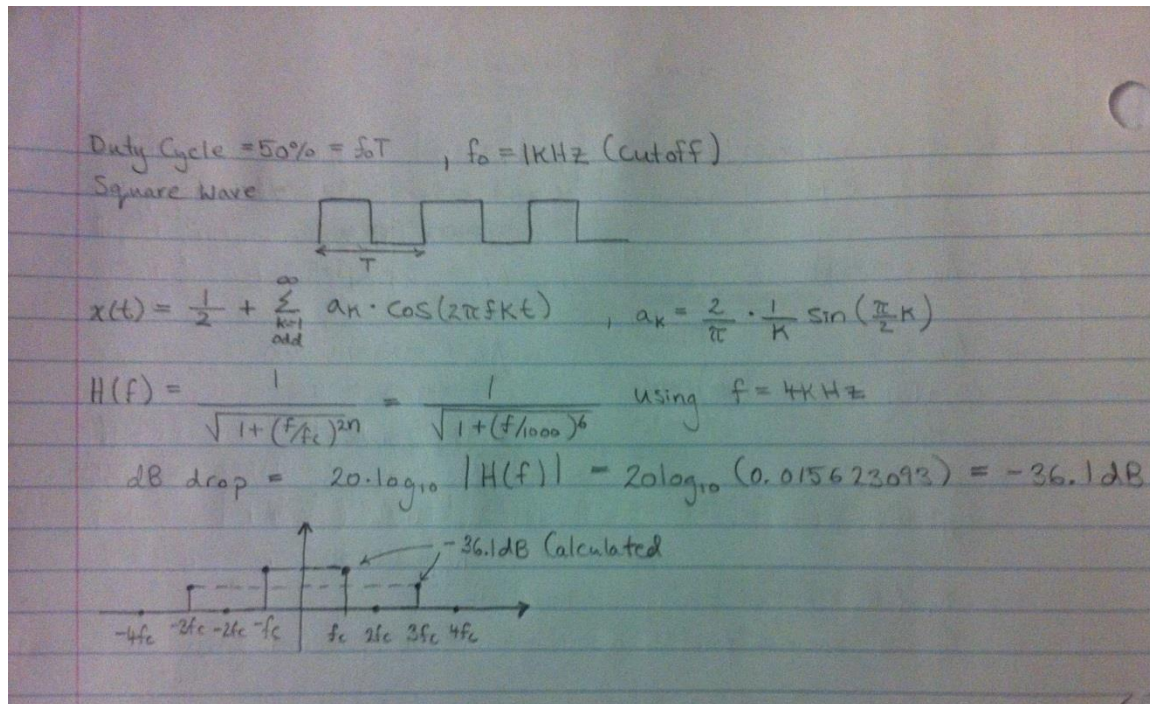 Duty Cycle = 50% = f₀T , f₀ = 1KHz (cutoff)
Square Wave
T
x(t) = 1/2 + ∞ Σ k=1 odd aₖ · cos(2πfkt) , aₖ = 2/π · 1/k sin(π/2 k)
H(f) = 1/√(1+(f/fc)²ⁿ) = 1/√(1+(f/1000)⁶) using f = 4KHz
dB drop = 20·log₁₀ |H(f)| = 20log₁₀ (0.015623093) = -36.1dB
-36.1dB Calculated
-4fc -3fc -2fc -fc fc 2fc 3fc 4fc